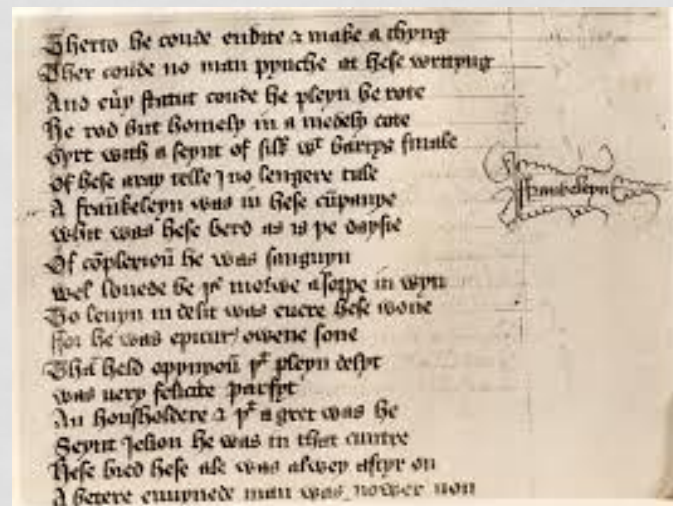 Therto he coude endite & make a thyng
Ther coude no man pynche at hese wrytyng
And eu̾y statut coude he pleyn be rote
He rod but homely in a medely cote
Gyrt with a seynt of silk wt barrys smale
Of hese aray telle j no lengere tale
A frau̅keleyn was in hese cu̅panye
Frankeleyn
whit was hese berd as is þe daysie
Of co̅plexiou̅ he was sanguyn
wel louede he þe morwe a sop in wyn
To leuyn in delit was euere hese wone
ffor he was epicur owene sone
Tha̅ held oppynyou̅ þt pleyn delyt
was uery felicite parfyt
An housholdere & þt a gret was he
Seynt Julion he was in that cuntre
Hese bred hese ale was alwey aftyr on
A betere enuynede man was nower non